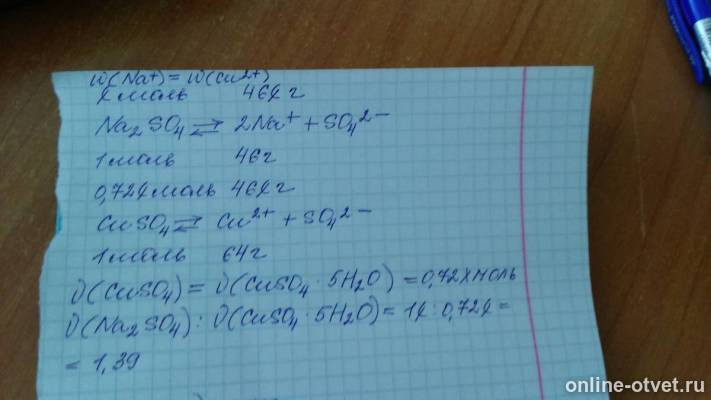 ω(Na⁺) = ω(Cu²⁺)
x моль 46x г
Na₂SO₄ ⇄ 2Na⁺ + SO₄²⁻
1 моль 46 г
0,72x моль 46x г
CuSO₄ ⇄ Cu²⁺ + SO₄²⁻
1 моль 64 г
ν(CuSO₄) = ν(CuSO₄ · 5H₂O) = 0,72x моль
ν(Na₂SO₄) : ν(CuSO₄ · 5H₂O) = 1x : 0,72x =
= 1,39
online-otvet.ru